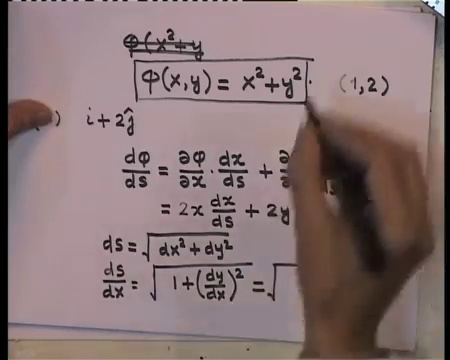 φ(x²+y
φ(x,y) = x²+y². (1,2)
) i+2ĵ
dφ/ds = ∂φ/∂x · dx/ds + ∂
= 2x dx/ds + 2y
ds = √(dx²+dy²)
ds/dx = √(1+(dy/dx)²) = √